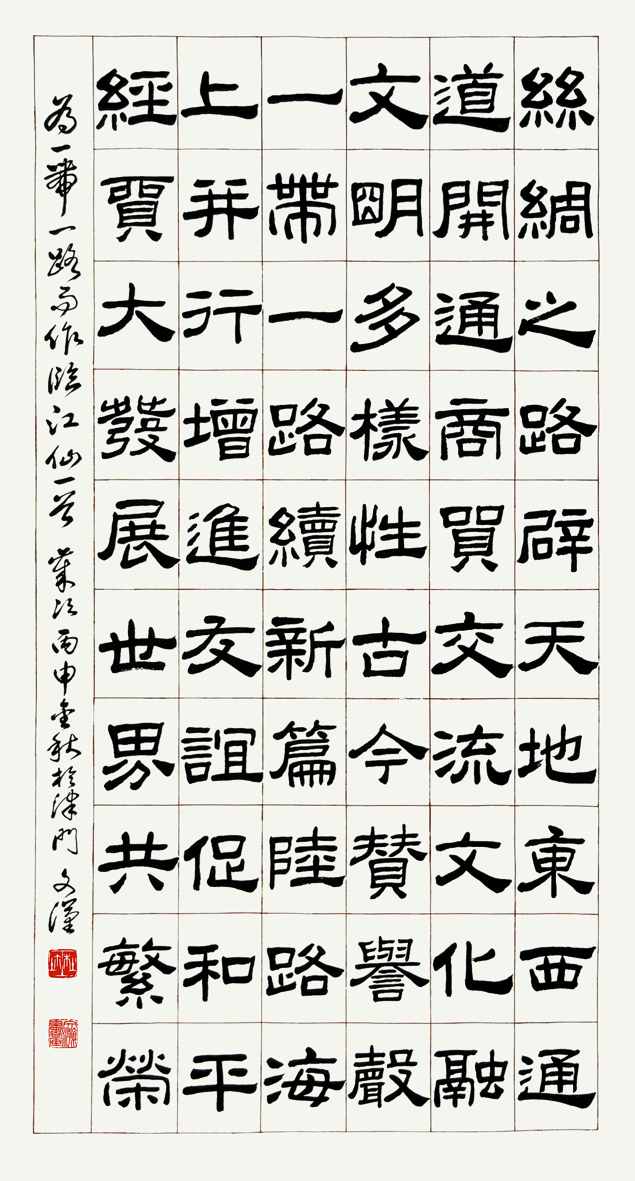 絲綢之路辟天地東西通
道開通商買交流文化融
文明多樣性古今贊譽聲
一帶一路續新篇陸路海
上并行增進友誼促和平
經買大發展世界共繁榮
為一帶一路而作臨江仙一首 歲次丙申金秋於津門 文漢